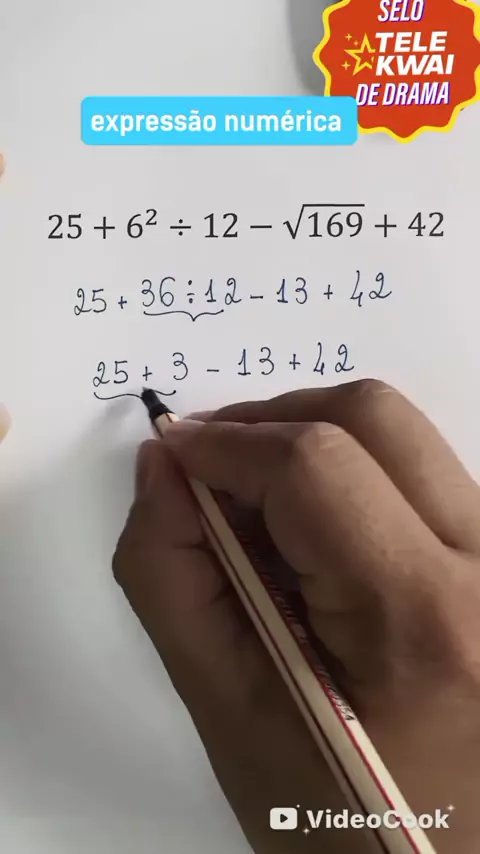 SELO
TELE
KWAI
DE DRAMA
expressão numérica
25 + 6² ÷ 12 − √169 + 42
25 + 36 ÷ 12 - 13 + 42
25 + 3 - 13 + 42
VideoCook